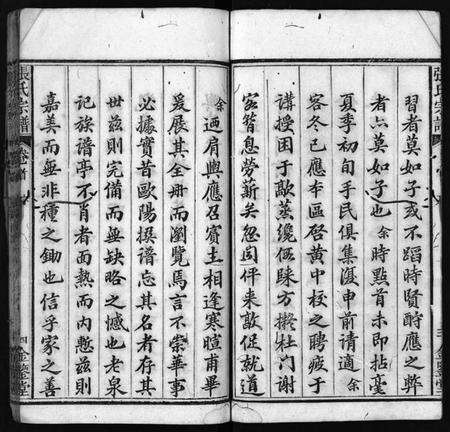 張氏宗譜
習者莫如子或不蹈時賢酧應之弊
者亦莫如子也余時點首未即拈毫
夏季初旬手民俱集復申前請適余
客冬已應本區啓黄中校之聘疲于
講授困于歊蒸纔伍踈方擬杜門謝
客暫息勞薪矣忽囘伻来敦促就道
余廼肩輿應召賓主相逢寒暄甫畢
爰展其全册而瀏覽焉言不崇華事
必據實昔歐陽撰譜忘其名者存其
世兹則完備而無缺略之憾也老泉
記族譜亭不肖者面熱而内慙兹則
嘉美而無非種之鋤也信乎家之善
張氏宗譜
卷首
四
金鑒堂